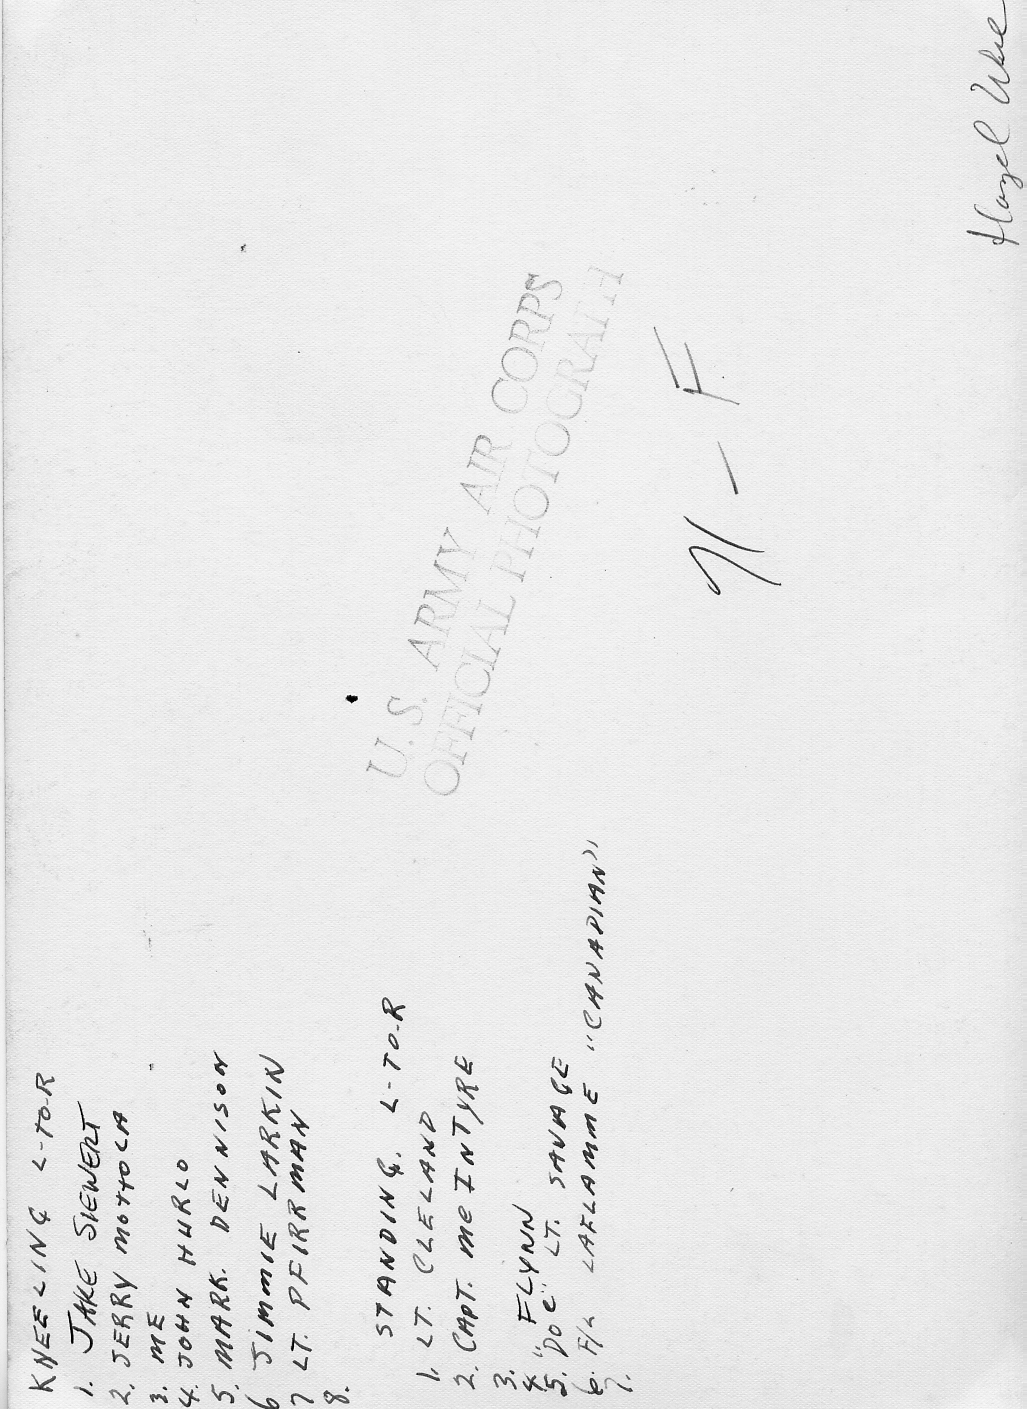 KNEELING L-TO-R
1. JAKE SIEWERT
2. JERRY MOTTOLA
3. ME
4. JOHN HURLO
5. MARK. DENNISON
6 JIMMIE LARKIN
7 LT. PFIRRMAN
8.
STANDING. L-TO-R
1. LT. CLELAND
2. CAPT. McINTYRE
3.
4. FLYNN
5. "DOC" LT. SAVAGE
6. F/L LAFLAMME "CANADIAN"
7.
U.S. ARMY AIR CORPS
OFFICIAL PHOTOGRAPH
Hazel